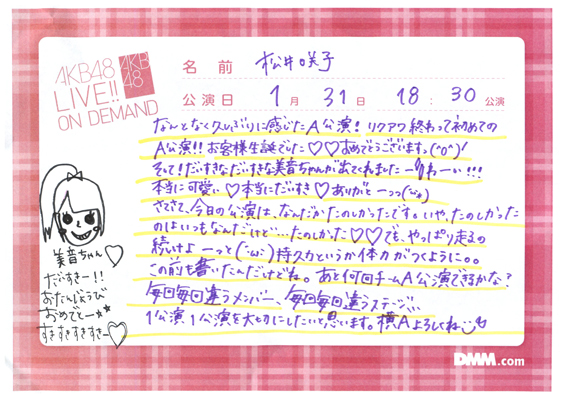 AKB48
LIVE!!
ON DEMAND
AKB
48
名前 松井咲子
公演日 1月31日 18:30公演
なんとなく久しぶりに感じたA公演! リクアワ終わって初めての
A公演!! お客様生誕でした♡♡おめでとうございます。(^o^)!
そして!だいすきなだいすきな美音ちゃんが出てくれましたーわーい!!!
本当に可愛い♡本当にだいすき♡ありがとーっっ
さてさて、今日の公演は、なんだかたのしかったです。いや、たのしかった
のはいつもなんだけど…たのしかった♡♡でも、やっぱり走るの
続けよーっと(´ω`)持久力というか体力がつくように。。
この前も書いたんだけどね。あと何回チームA公演できるかな?
毎回毎回違うメンバー、毎回毎回違うステージ、、、
1公演1公演を大切にしたいと思います。横Aよろしくね
美音ちゃん♡
だいすきー!!
おたんじょうび
おめでとー
すきすきすきすきー♡
DMM.com